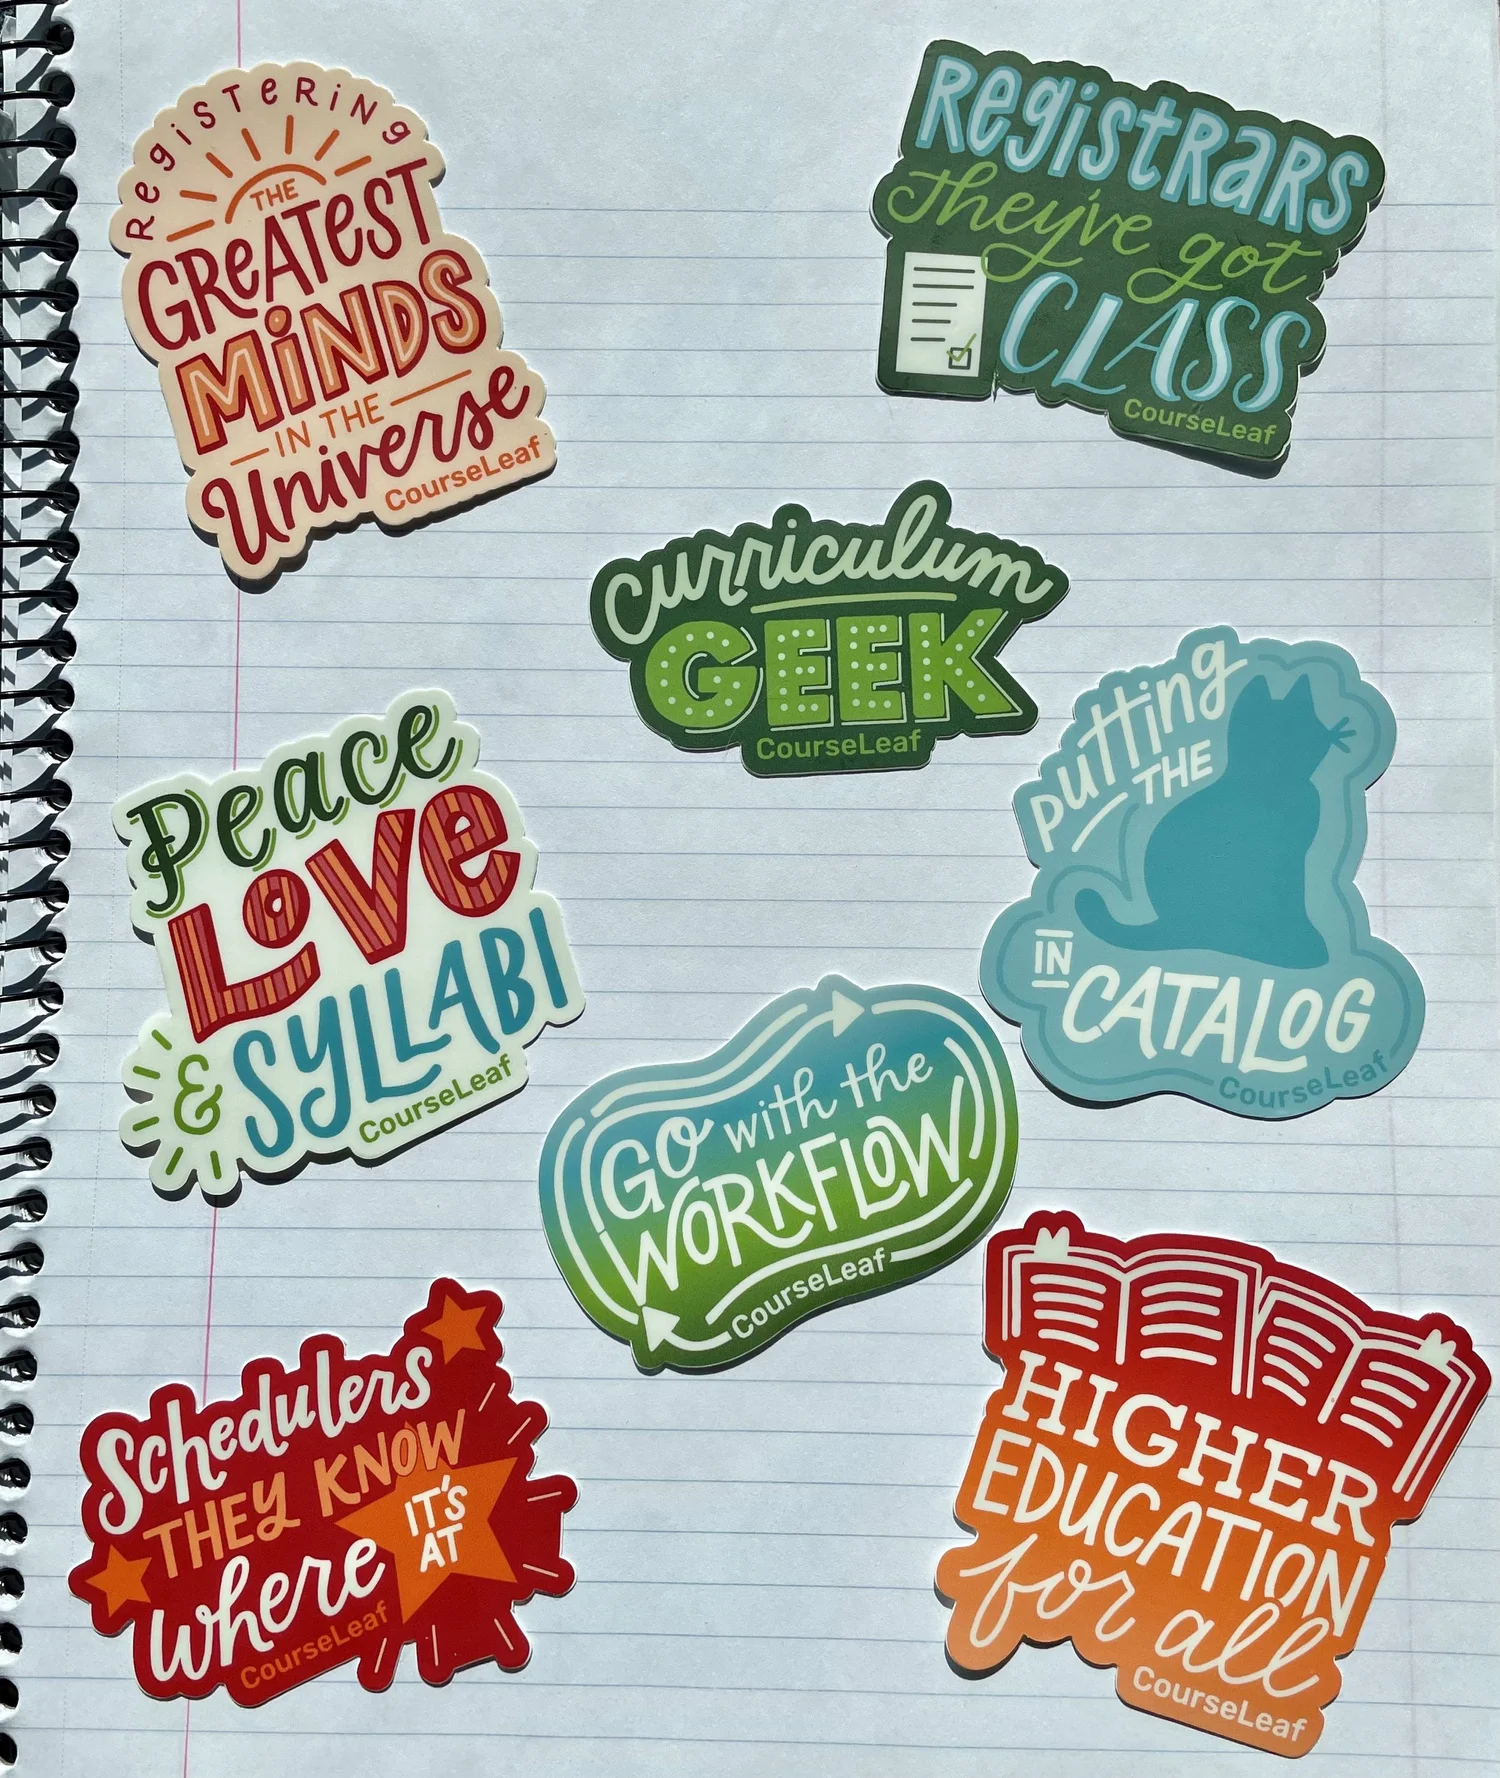 RegiSTeRiNg
THE
GReATeST
MiNDS
IN THE
Universe
CourseLeaf
RegistRaRS
They've got
CLASS
CourseLeaf
curriculum
GEEK
CourseLeaf
Peace
LoVe
& SYLLABI
CourseLeaf
putting
THE
IN
CATALOG
CourseLeaf
GO with the
WORKFLOW
CourseLeaf
Schedulers
THEY KNOW
where IT'S
AT
CourseLeaf
HIGHER
EDUCATION
for all
CourseLeaf